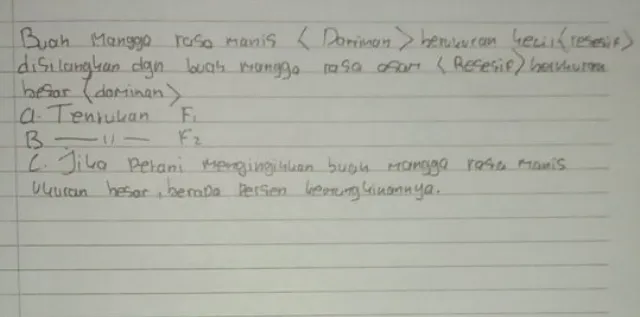 Buah Mangga rasa manis (Dominan) berukuran kecil (resesif)
disilangkan dgn buah mangga rasa asam (Resesif) berukuran
besar (dominan)
a. Tentukan F1
B — 11 — F2
C. Jika Petani menginginkan buah mangga rasa manis
Ukuran besar, berapa Persen kemungkinannya.